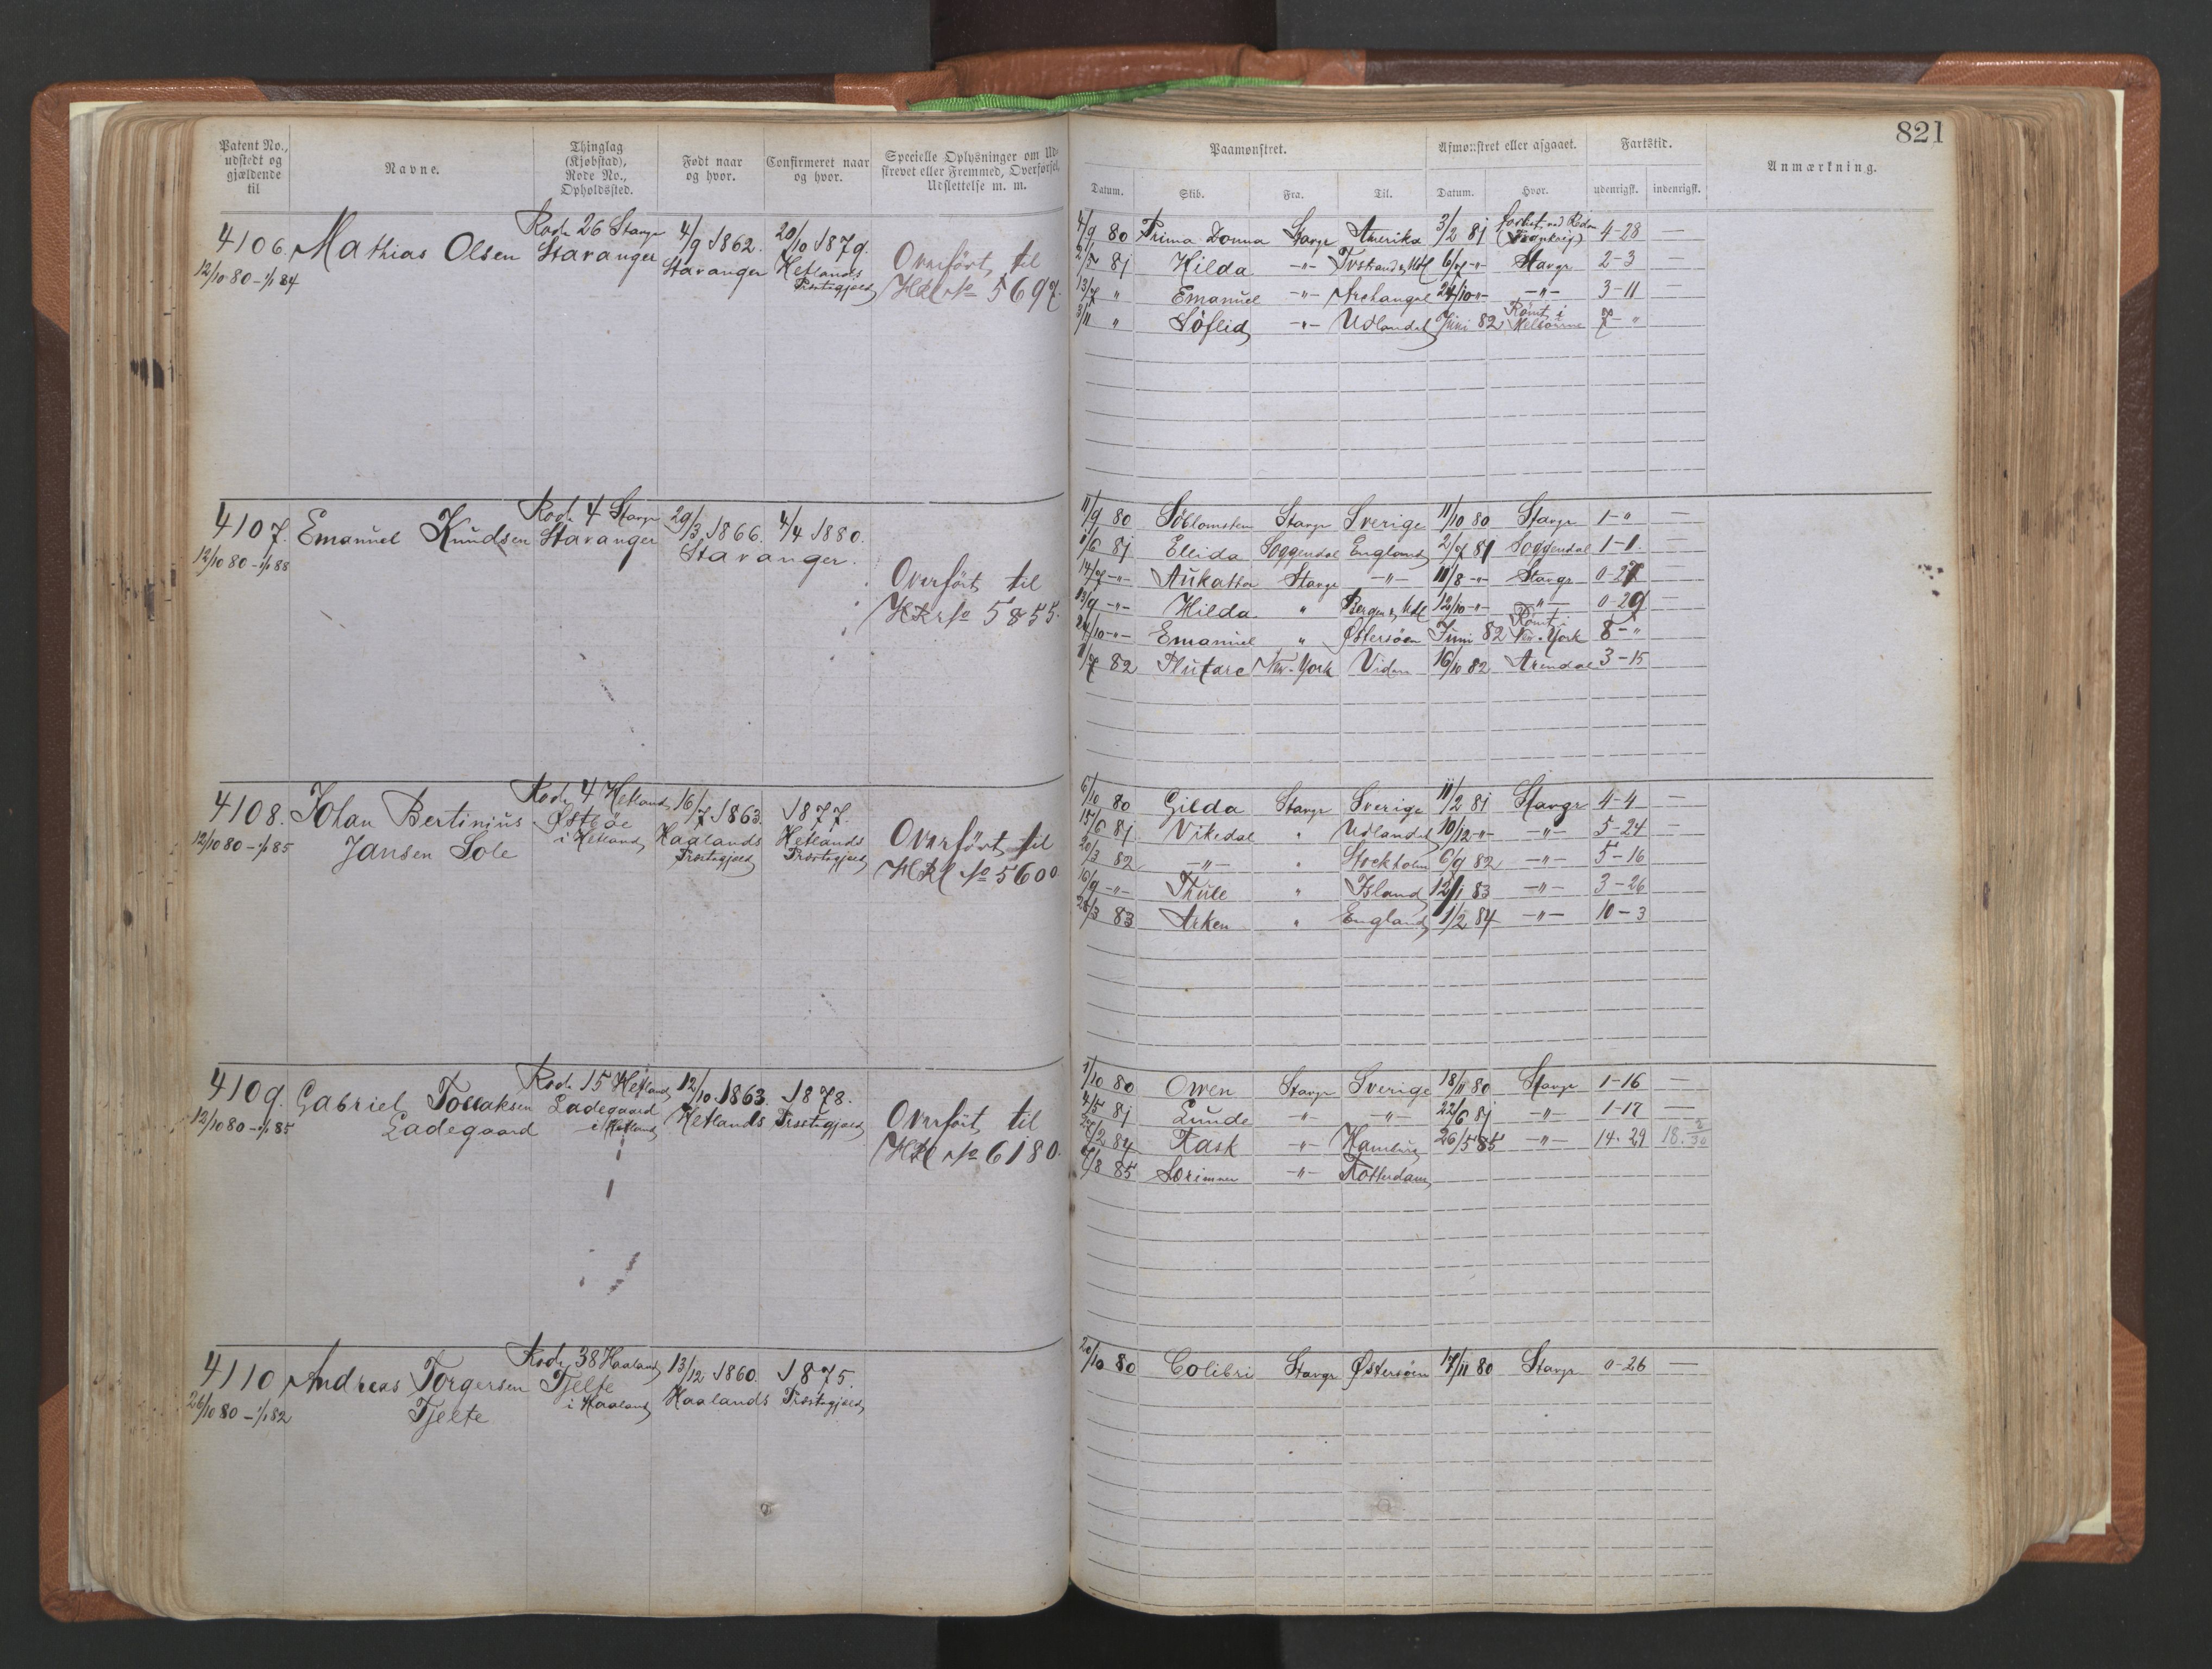 821
Patent No., udstedt og gjældende til
Navne.
Thinglag (Kjøbstad), Rode No., Opholdssted.
Født naar og hvor.
Confirmeret naar og hvor.
Specielle Oplysninger om Udskrevet eller Fremmed, Overførsel, Udslettelse m. m.
Paamønstret.
Afmønstret eller afgaaet.
Fartstid.
Anmærkning.
Datum. Skib. Fra. Til. Datum. Hvor. udenrigsk. indenrigsk.
4106. Mathias Olsen
12/10 80 – 1/1 84
Rode 26 Stavgr
Stavanger
4/9 1862.
Stavanger
20/10 1879.
Hetlands
Præstegjæld
Overført til
HRl No 5697
4/9 80 Prima Donna Stavgr Amerika 3/2 81 4-28 —
2/5 81 Hilda -"- 6/7 -"- Stavgr 2-3 —
13/7 " Emanuel -"- Archangel 24/10 -"- -"- 3-11 —
3/11 " Söflid -"- Udlandet Juni 82 Rømt i Melbourne 7-"
4107. Emanuel Knudsen
12/10 80 – 1/1 88
Rode 4 Stavgr
Stavanger
29/3 1866.
4/4 1880.
Stavanger.
Overført til
HRl No 5855.
11/9 80 Söblomsten Stavgr Sverige 11/10 80 Stavgr 1-" —
1/6 81 Ellida Soggendal England 2/7 81 Soggendal 1-1. —
14/7 -"- Aukatta Stavgr -"- 11/8 -"- Stavgr 0-27 —
13/9 -"- Hilda " Bergen & Udl 12/10 -"- -"- 0-29 —
24/10 -"- Emanuel " Østersøen Juni 82 Rømt i New-York 8-"
1/7 82 Plutarc New-York Videre 16/10 82 Arendal 3-15
4108. Johan Bertinius
Jansen Sole
12/10 80 – 1/1 85
Rode 4 Hetland
Østbøe
i Hetland
16/7 1863.
Haalands
Præstegjæld
1877.
Hetlands
Præstegjæld
Overført til
HRl No 5600
6/10 80 Gilda Stavgr Sverige 11/2 81 Stavgr 4-4 —
15/6 81 Vikedal " Udlandet 10/12 -"- -"- 5-24 —
20/3 82 -"- " Stockholm 6/9 82 -"- 5-16
16/9 -"- Thule " Island 12/1 83 -"- 3-26
28/3 83 Arken " England 1/2 84 -"- 10-3
4109. Gabriel Tollaksen
Ladegaard
12/10 80 – 1/1 85
Rode 15 Hetland
Ladegaard
i Hetland
12/10 1863.
1878.
Hetlands Præstegjæld
Overført til
HRl No 6180.
1/10 80 Owen Stavgr Sverige 18/11 80 Stavgr 1-16 —
4/5 81 Lunde -"- -"- 22/6 81 -"- 1-17 —
27/2 84 Rask -"- Hamburg 26/5 85 -"- 14. 29 18. 2/30
7/8 85 Særimner -"- Rotterdam
4110 Andreas Torgersen
Tjelte
26/10 80 – 1/1 82
Rode 38 Haaland
Tjelte
i Haaland
13/12 1860.
1875.
Haalands Præstegjæld
20/10 80 Colibri Stavgr Østersøen 17/11 80 Stavgr 0-26 —